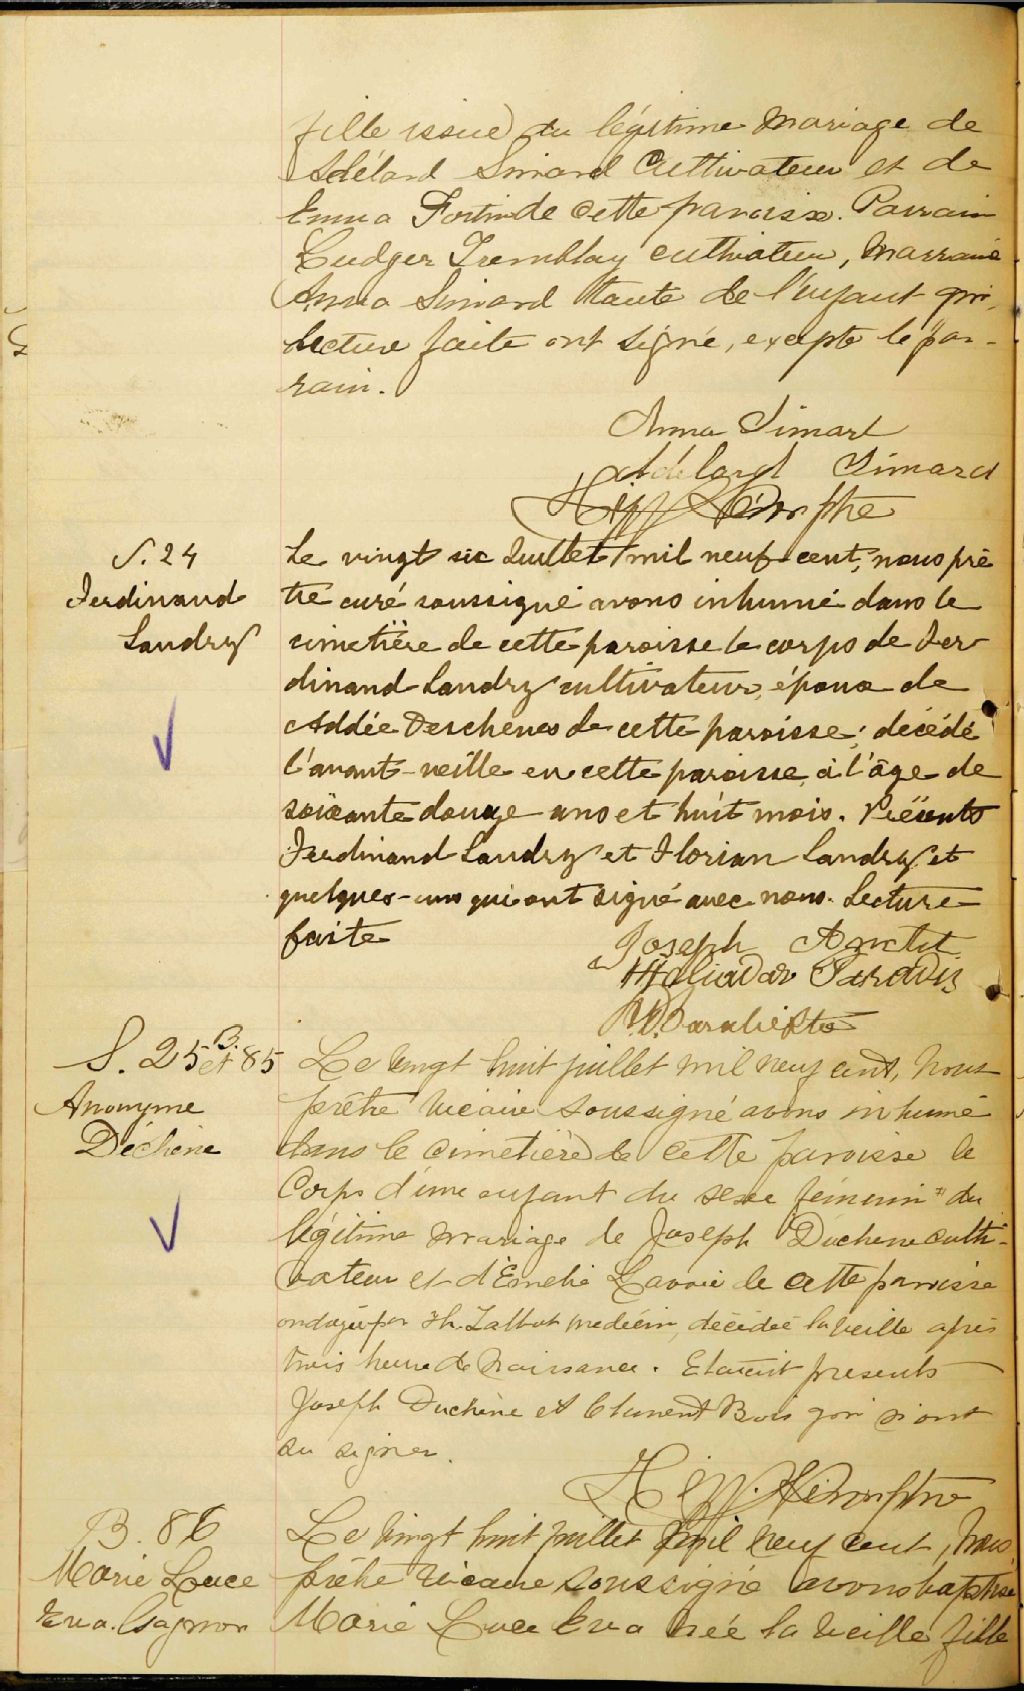 fille issue du légitime mariage de
Adélard Simard Cultivateur et de
Emma Fortin de cette paroisse. Parrain
Eudger Tremblay cultivateur, Marraine
Anna Simard tante de l'enfant qui,
lecture faite ont signé, excepté le par-
rain.
Anna Simard
Adélard Simard
S. 24
Ferdinand
Landry
Le vingt six Juillet mil neuf cent, nous prê
tre curé soussigné avons inhumé dans le
cimetière de cette paroisse le corps de Fer
dinand Landry cultivateur, époux de
Addée Deschenes de cette paroisse; décédé
l'avant-veille en cette paroisse, à l'âge de
soixante douze ans et huit mois. Présents
Ferdinand Landry et Florian Landry et
quelques-uns qui ont signé avec nous. Lecture
faite
Joseph
Paradis
S. 25 et B. 85
Anonyme
Déchène
Le vingt huit juillet mil neuf cent, Nous
prêtre vicaire soussigné avons inhumé
dans le cimetière de cette paroisse le
Corps d'une enfant du sexe féminin # du
légitime mariage de Joseph Duchene culti-
vateur et d'Emelie Lavoie de cette paroisse
ondoyé par Th. Talbot medecin, décédée la veille après
trois heure de naissance. Etaient presents
Joseph Duchène et Clement Bois qui n'ont
su signer.
B. 86
Marie Luce
Eva Gagnon
Le vingt huit juillet mil neuf cent, Nous
prêtre vicaire soussigné avons baptisé
Marie Luce Eva née la veille fille